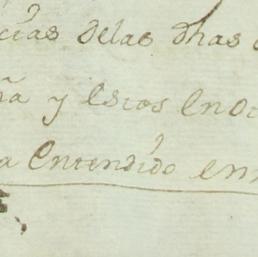 cias delas dhas
ña y estos en
a Entendido en